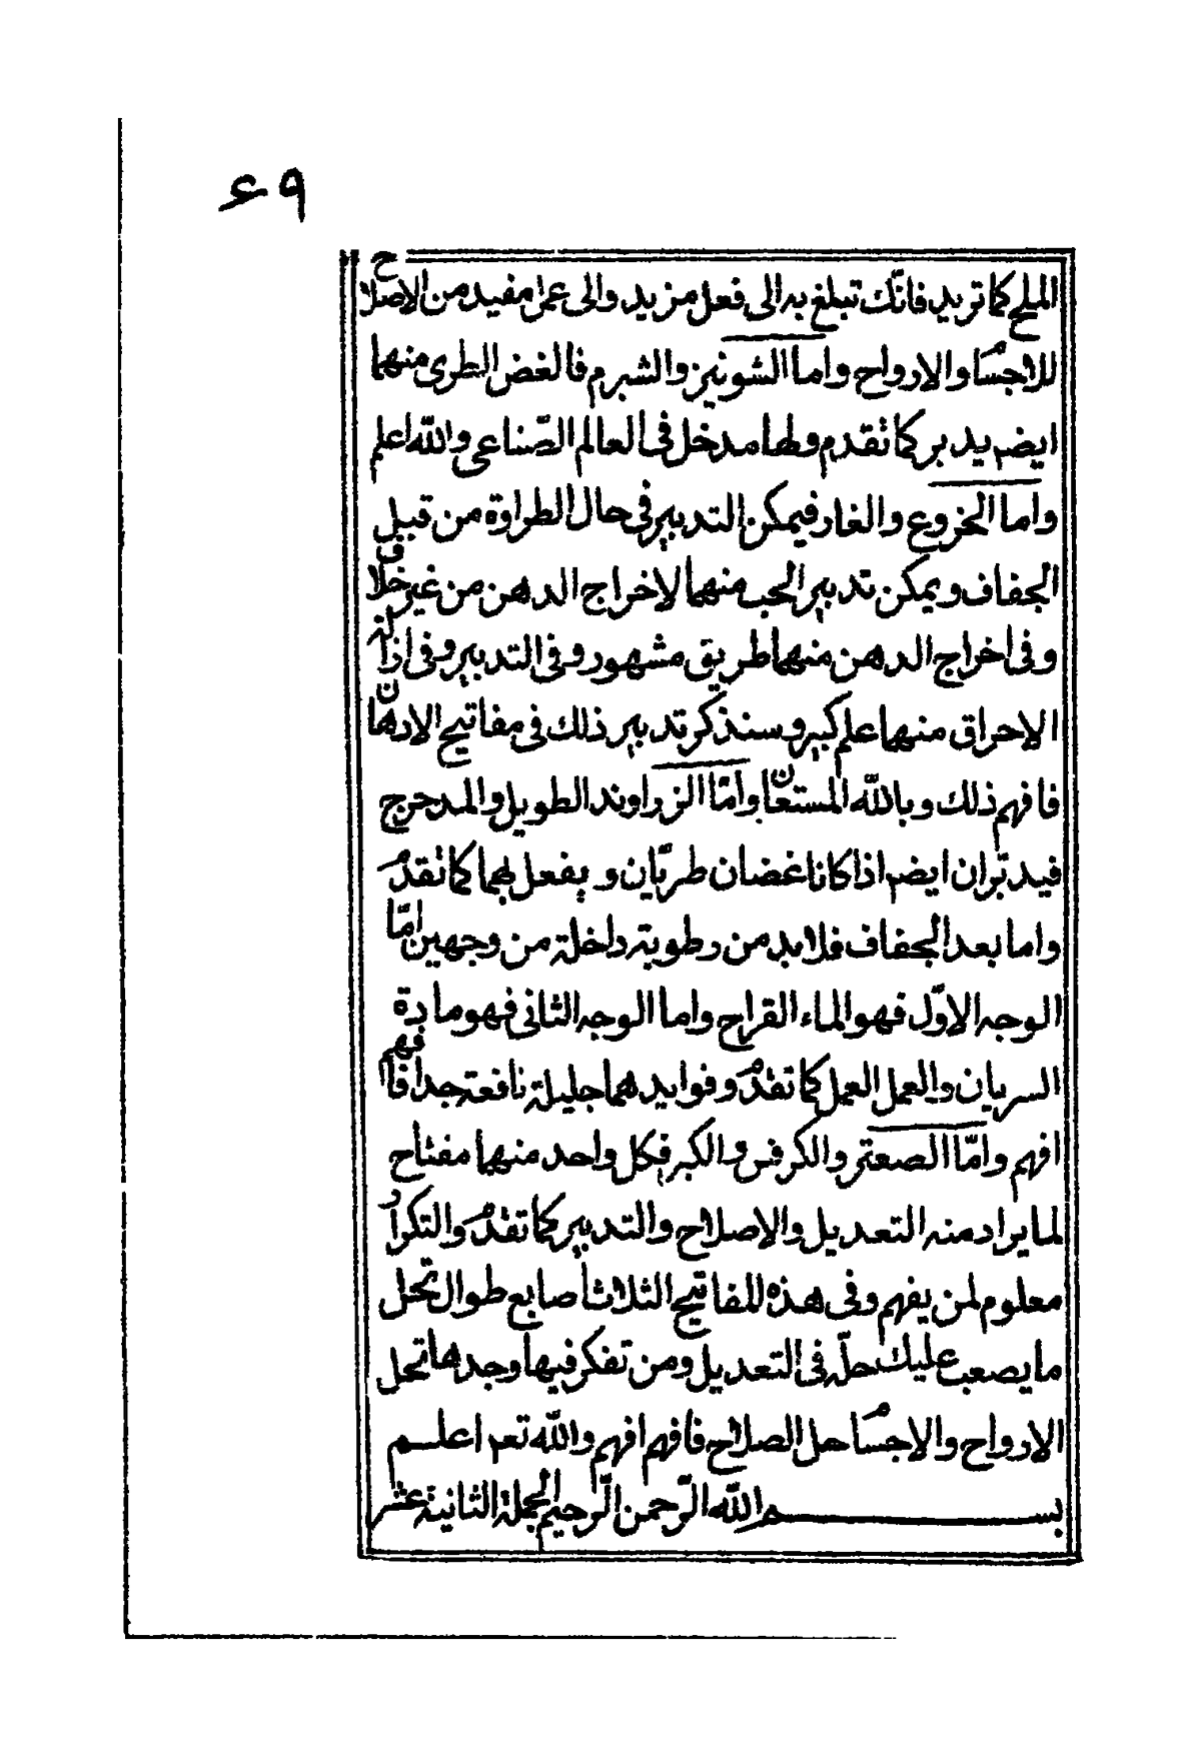 ٤٩
المليح كما تريد فانّك تبلغ به الى فعل مزيد والى عمل مفيد من الاصلاح
للاجسام والارواح واما الشونيز والشبرم فالغض الطرى منهما
ايضم يدبر كما تقدم ولها مدخل فى العالم الصّناعى والله اعلم
واما الخروع والغار فيمكن التدبير فى حال الطراوة من قبيل
الجفاف ويمكن تدبير الحب منهما لاخراج الدهن من غير خلاف
وفى اخراج الدهن منهما طريق مشهور وفى التدبير وفى ازالة
الاحراق منهما علم كبير وسنذكر تدبير ذلك فى مفاتيح الادهان
فافهم ذلك وبالله المستعان وامّا الزراوند الطويل والمدحرج
فيدبّران ايضم اذا كانا غضان طريّان ويفعل بهما كما تقدم
واما بعد الجفاف فلابد من رطوبة داخلة من وجهين امّا
الوجه الاوّل فهو الماء القراح واما الوجه الثانى فهو مادة
السريان والعمل العمل كما تقدم وفوايدهما جليلة نافعة جدا فافهم
افهم وامّا الصعتر والكرفس والكبر فكل واحد منهما مفتاح
لما يراد منه التعديل والاصلاح والتدبير كما تقدم والتكرار
معلوم لمن يفهم وفى هذه للفاتيح الثلاث اصابع طوال تحل
ما يصعب عليك حلّه فى التعديل ومن تفكر فيها وجدها تحل
الارواح والاجسام حل الصلاح فافهم افهم والله تعم اعلم
بسم الله الرّحمن الرّحيم الجملة الثانية عشر